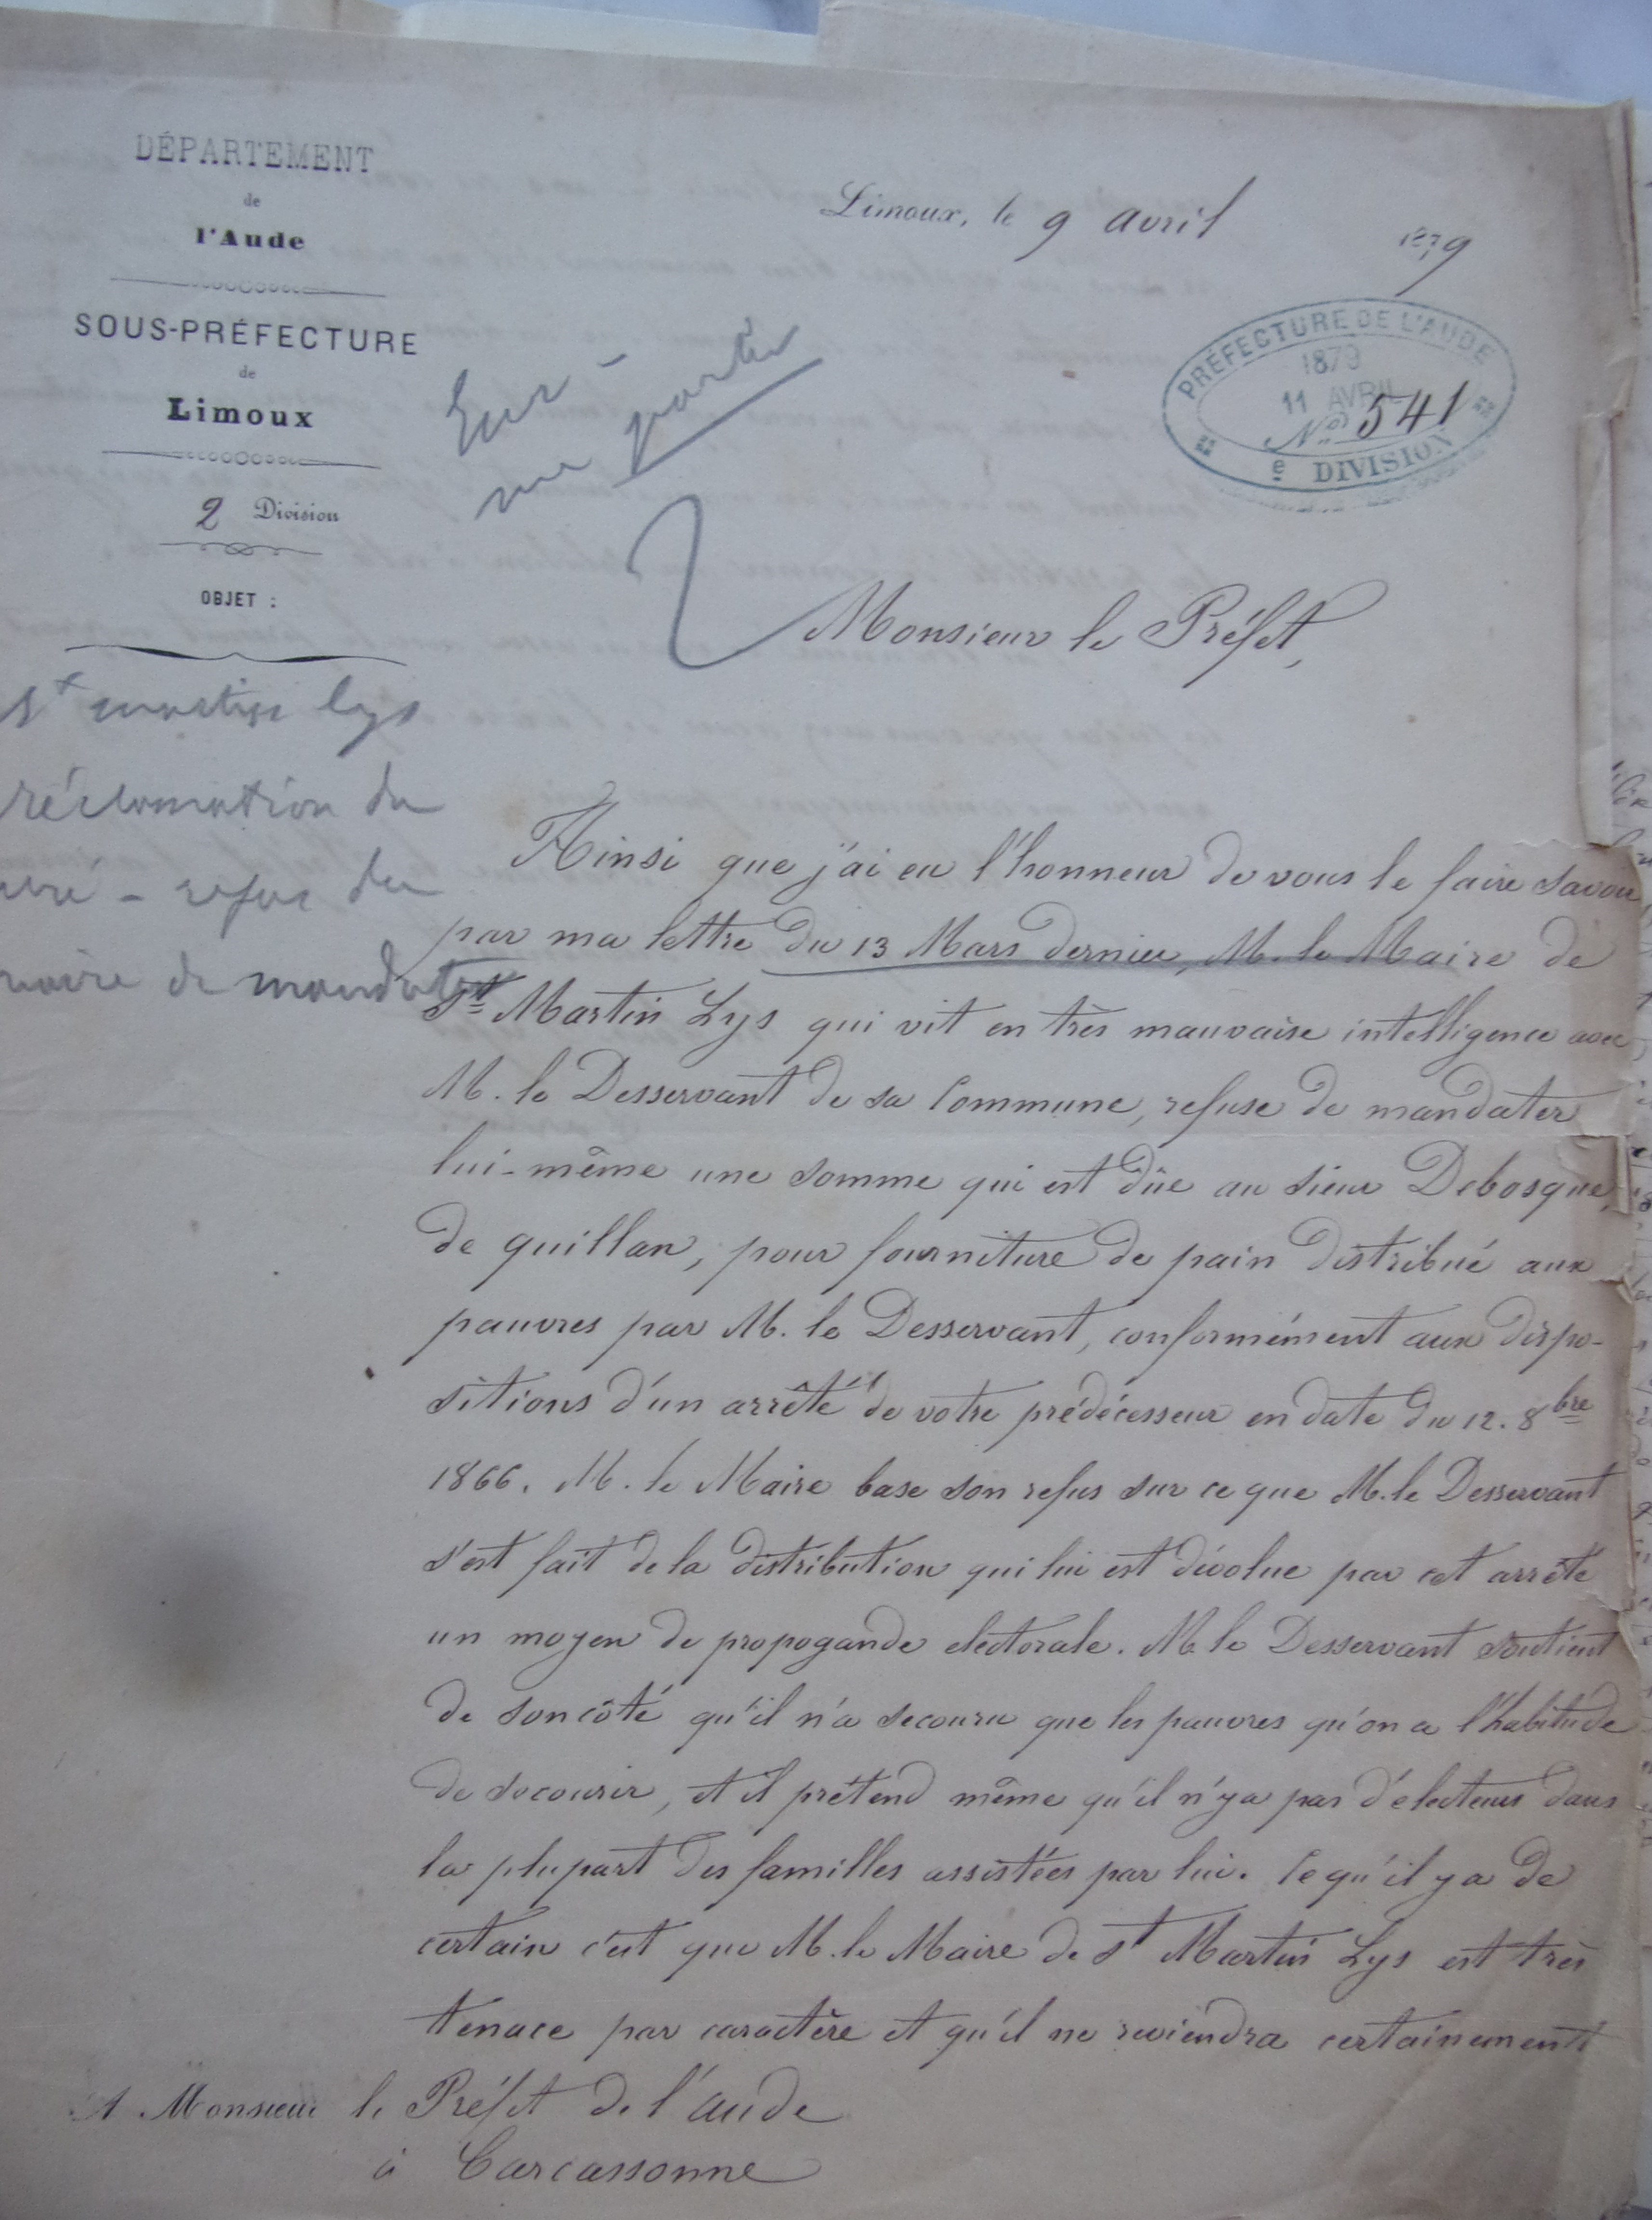 DÉPARTEMENT
de
l'Aude
SOUS-PRÉFECTURE
de
Limoux
2 Division
OBJET :
St martin lys
réclamation du
curé - refus du
maire de mandater
Limoux, le 9 avril 1879
PRÉFECTURE DE L'AUDE
1879
11 AVRIL
No 541
e DIVISION
Monsieur le Préfet,
Ainsi que j'ai eu l'honneur de vous le faire savoir
par ma lettre du 13 Mars dernier, M. le Maire de
St Martin Lys qui vit en très mauvaise intelligence avec
M. le Desservant de sa Commune, refuse de mandater
lui-même une somme qui est dûe au sieur Debosque,
de quillan, pour fourniture de pain distribué aux
pauvres par M. le Desservant, conformément aux dispo-
sitions d'un arrêté de votre prédécesseur en date du 12. 8bre
1866. M. le Maire base son refus sur ce que M. le Desservant
s'est fait de la distribution qui lui est dévolue par cet arrêté
un moyen de propogande electorale. M. le Desservant soutient
de son côté qu'il n'a secouru que les pauvres qu'on a l'habitude
de secourir, et il prétend même qu'il n'y a pas d'électeurs dans
la plupart des familles assistées par lui. Ce qu'il y a de
certain c'est que M. le Maire de St Martin Lys est très
tenace par caractère et qu'il ne reviendra certainement
A Monsieur le Préfet de l'aude
à Carcassonne